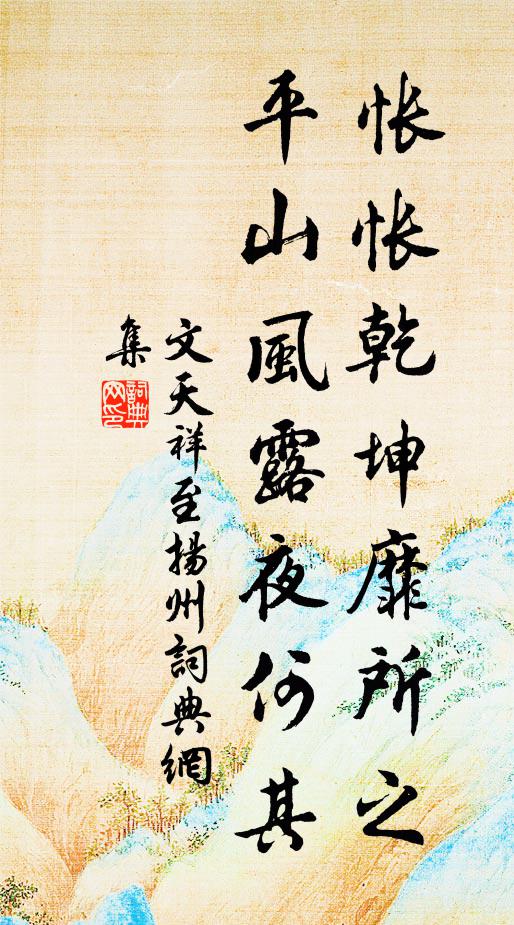 悵悵乾坤靡所之
平山風露夜何其
文天祥至揚州詞典網
集
詞典
网